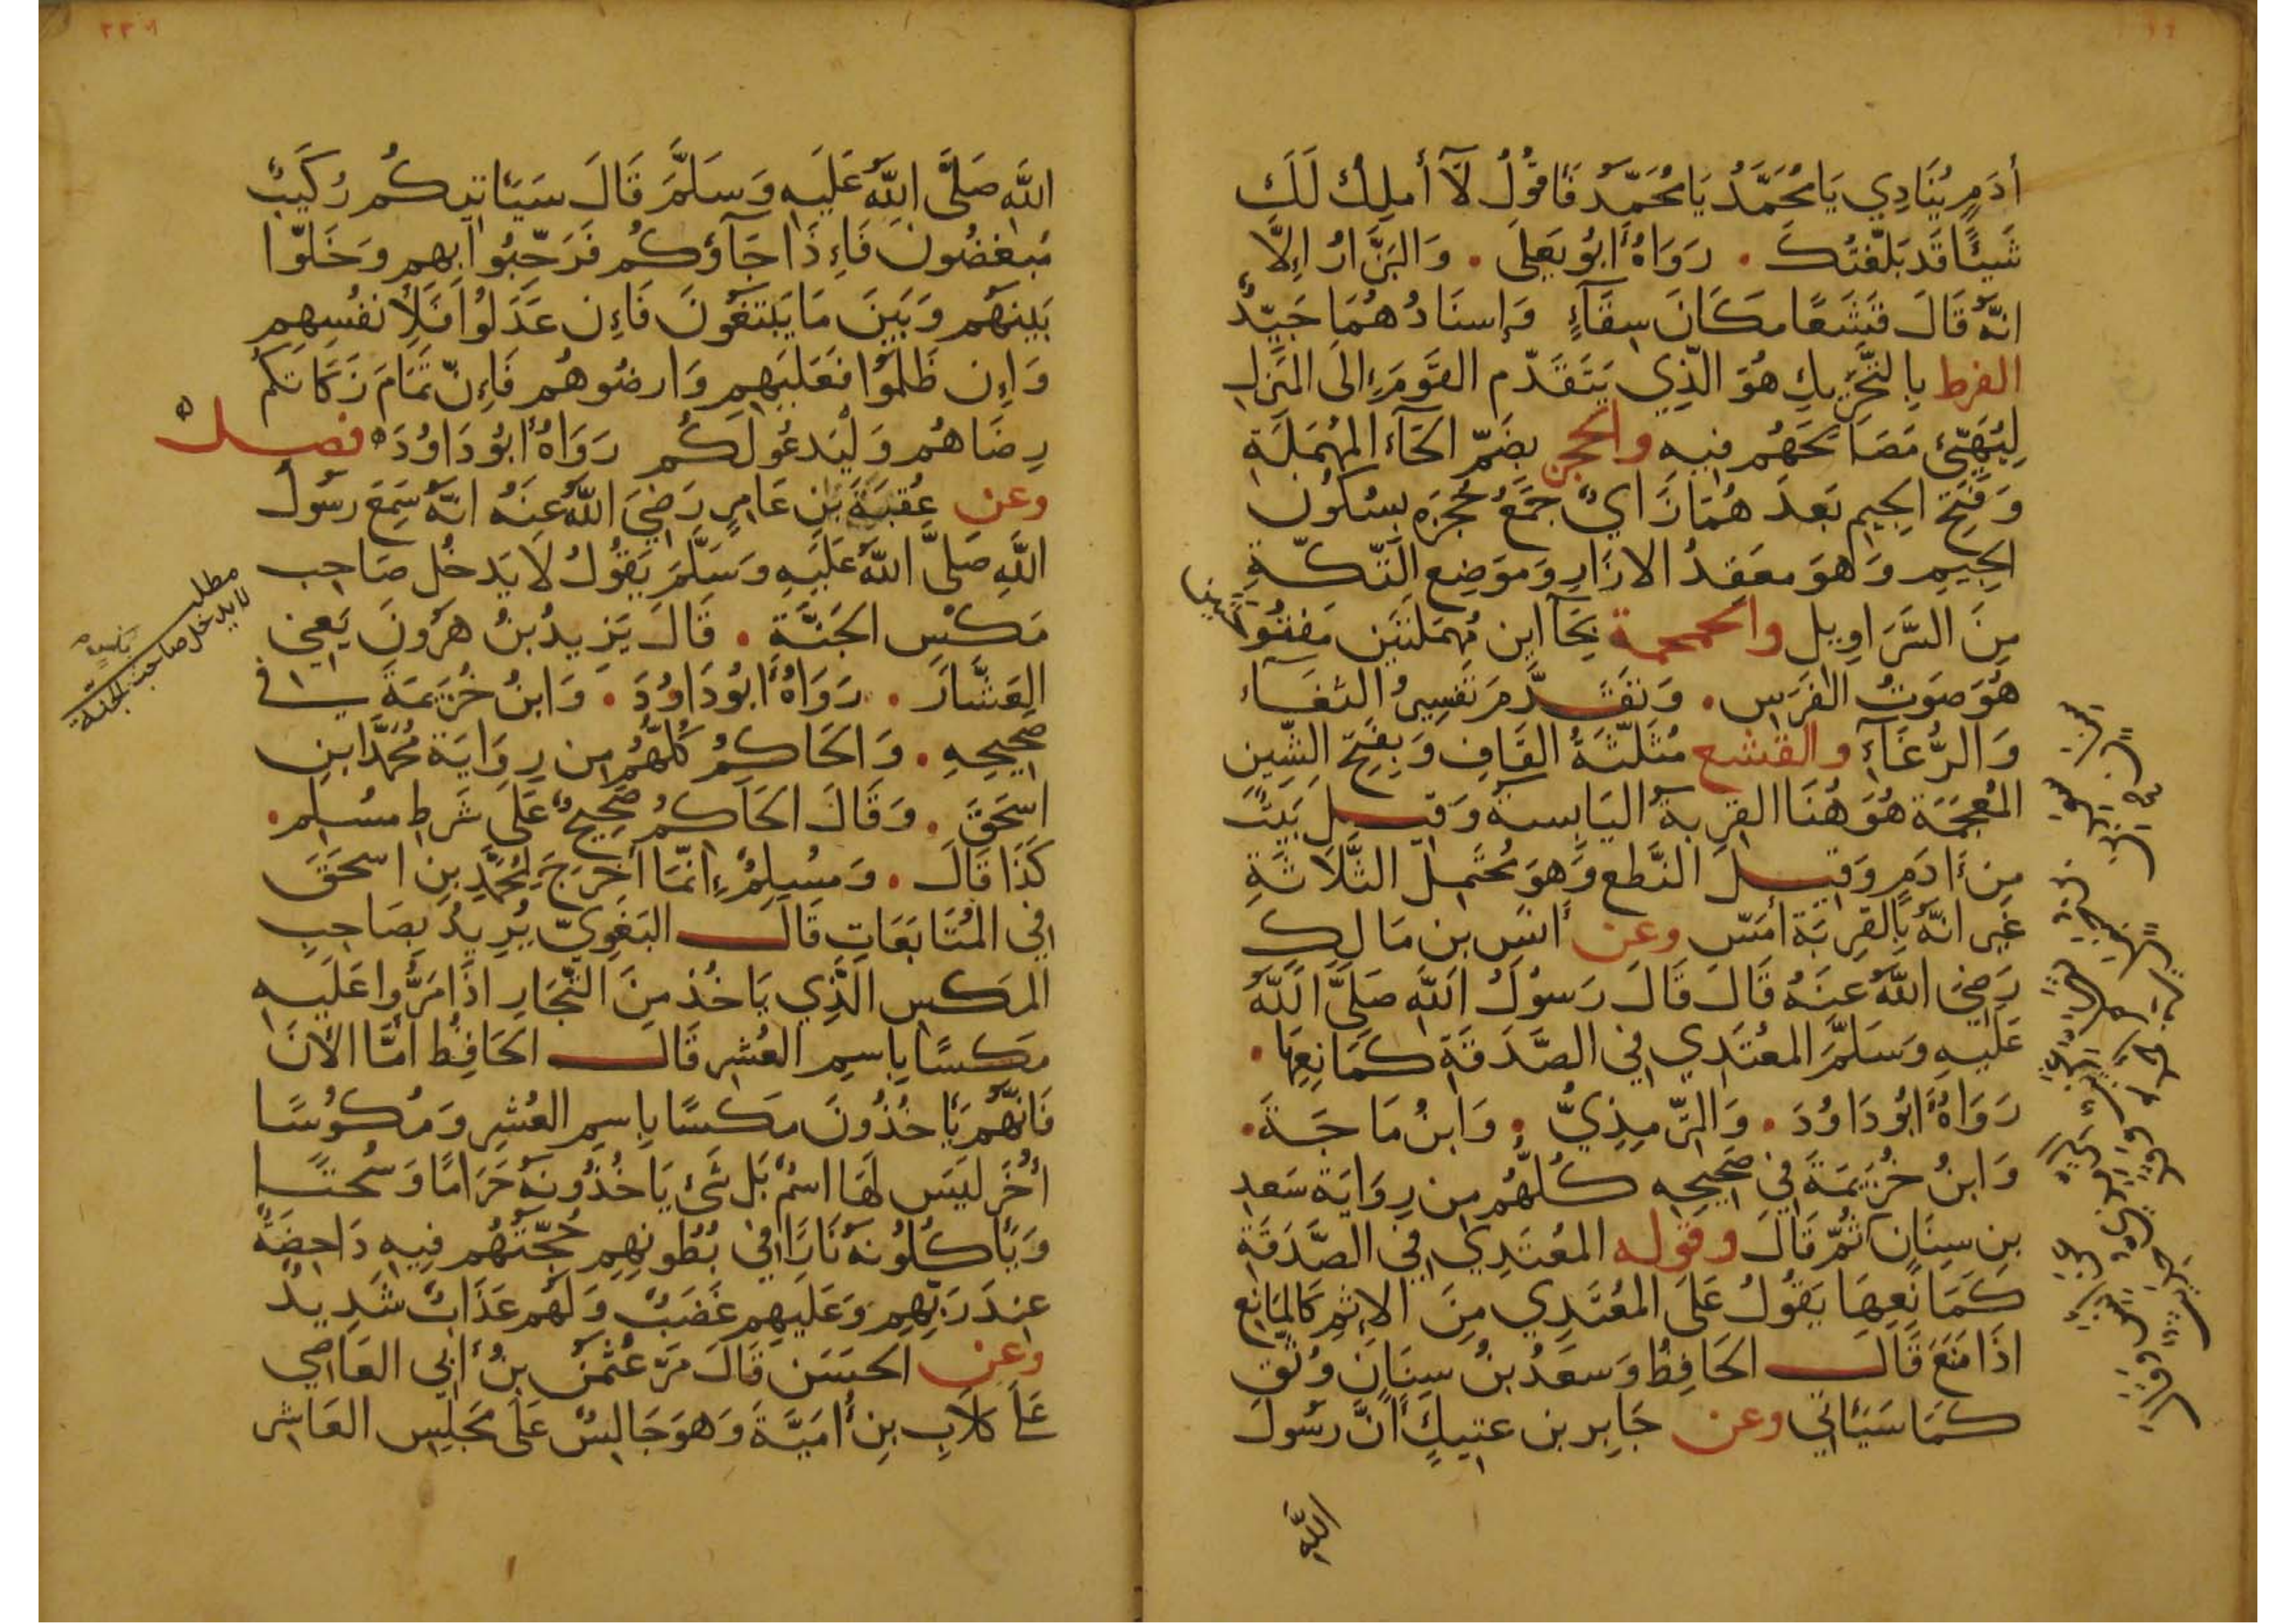 أدَمٍ يُنَادِي يَا مُحَمَّدُ يَا مُحَمَّدُ فَأقُولُ لَآ أملِكُ لَكَ
شَيئًا قَد بَلَّغتُكَ . رَوَاهُ أبُو يَعلَى . وَالبَزَّارُ إلَّا
انَّهُ قَالَ قَشعًا مَكَانَ سِقَآءٍ وَإسنَادُهُمَا جَيِّدٌ
الفرط بِالتَّحرِيكِ هُوَ الَّذِي يَتَقَدَّم القَومَ إلَى المَنزِلِ
لِيُهَيِّئ مَصَالِحَهُم فِيهِ والحجز بِضَمِّ الحَآءِ المُهمَلَةِ
وَفَتحِ الجِيمِ بَعدَهُمَا زَايٌ جَمعُ حُجزَه بِسُكُونِ
الجِيمِ وَهوَ مَعقِدُ الازَارِ وَمَوضِع التِّكَّةِ
مِنَ السَّرَاوِيل والحمحمة بِحَاأين مُهمَلَتَين مَفتُوحَتَين
هُوَ صَوتُ الفَرَسِ . وَتَقَدَّمَ تَفسِيرُ الثغَآء
وَالرُّغَآءِ والقشع مُثَلَّثَةُ القَافِ وَبِفَتحِ الشِّينِ
المُعجَمَة هُوَ هُنَا القِربَةُ اليَابِسَةُ وَقِيلَ بَيتٌ
مِن أَدَمٍ وَقِيلَ النَّطع وَهوَ مُحتَمِلُ الثَّلَاثَةِ
غَيرَ انَّهُ بِالقِربَة أمَسّ وعن أنَسِ بنِ مَالِكٍ
رَضِيَ اللَّهُ عَنهُ قَالَ قَالَ رَسُولُ اللَّهِ صَلَّى اللَّهُ
عَلَيهِ وَسَلَّمَ المعتَدِي فِي الصَّدَقَةِ كَمَانِعِهَا .
رَوَاهُ أبُو دَاوُدَ . وَالتِّرمِذِيُّ . وَابنُ مَاجَةَ .
وَابنُ خُزَيمَةَ فِي صَحِيحِهِ كُلُّهُم مِن رِوَايَة سَعدِ
بنِ سِنَانٍ ثُمَّ قَالَ وقوله المعُتَدِي فِي الصَّدَقَةِ
كَمَانِعِهَا يَقُولُ عَلَى المُعتَدِي مِنَ الإثمِ كَالمَانِعِ
اذَا مَنَعَ قَالَ الحَافِظُ وَسَعدُ بنُ سِنَانٍ وُثِّق
كَمَا سَيَأتِي وعن جَابِر بن عتِيكٍ أنَّ رسُولَ
اللَّهِ
اللَّهِ صَلَّى اللَّهُ عَلَيهِ وَسَلَّمَ قَالَ سَيَأتِيكُم رُكَيبٌ
مُبغضُونَ فَإِذَا جَآؤُكُم فَرَحِّبُوا بِهِم وَخَلّوا
بَينَهُم وَبَينَ مَا يَبتَغُونَ فَإِن عَدَلُوا فَلِأنفُسِهِم
وَإِن ظَلَمُوا فَعَلَيهِم وَارضُوهُم فَإِنّ تَمَامَ زَكَاتِكُم
رِضَاهُم وَلْيَدعُوا لَكُم رَوَاهُ أبُو دَاوُدَ فصل
وعن عُقبَةَ بنِ عَامِرٍ رَضِيَ اللَّهُ عَنهُ انَّهُ سَمِعَ رسُولَ
اللَّهِ صَلَّى اللَّهُ عَلَيهِ وَسَلَّمَ يَقُولُ لَا يَدخُل صَاحِب
مطلب
لا يدخل صاحب
الجنة
مَكْسٍ الجَنَّةَ . قَالَ يَزِيدُ بنُ هرُونَ يَعنِي
العَشَّارَ . رَوَاهُ أبُو دَاوُدَ . وَابنُ خُزَيمَةَ فِي
صَحِيحِهِ . وَالحَاكِمُ كُلُّهُم مِن رِوَايَة مُحَمَّد ابنِ
اسحَقَ . وَقَالَ الحَاكِمُ صَحِيحٌ عَلَى شَرطِ مسُلِم .
كَذَا قَالَ . وَمسُلِمٌ إنَّمَا أخرَجَ لِمُحَمَّدِ بنِ اسحَقَ
فِي المُتَابَعَاتِ قَالَ البَغَوِيّ يُرِيدُ بِصَاحِبِ
المَكسِ الَّذِي يَاخُذ مِنَ التُّجَارِ اذَا مَرُّوا عَلَيهِ
مَكسًا بِاسمِ العُشرِ قَالَ الحَافِظُ أمَّا الأنَ
فَانَّهُم يَأخذُونَ مَكسًا بِاسمِ العُشرِ وَمُكُوسًا
أُخَرَ لَيسَ لَهَا اسمٌ بَل شَئ يَاخُذُونَهُ حَرَامًا وَسُحتًا
وَيَأكُلُونَهُ نَارًا فِي بُطُونِهِم حُجَّتُهُم فِيهِ دَاحِضَةٌ
عِندَ رَبِّهِم وَعَلَيهِم غَضَبٌ وَلَهُم عَذَابٌ شَدِيدٌ
وعن الحَسَنِ قَالَ مَرّ عُثمَنُ بنُ أبِي العَاصِي
عَلَى كِلَابِ بنِ أمَيَّةَ وَهوَ جَالِسٌ عَلَى مَجلِسِ العَاشِر